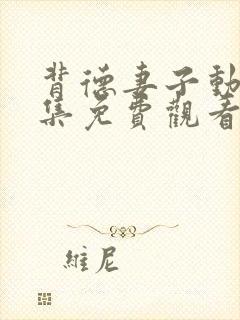 背德妻子動
集免費觀看
維尼